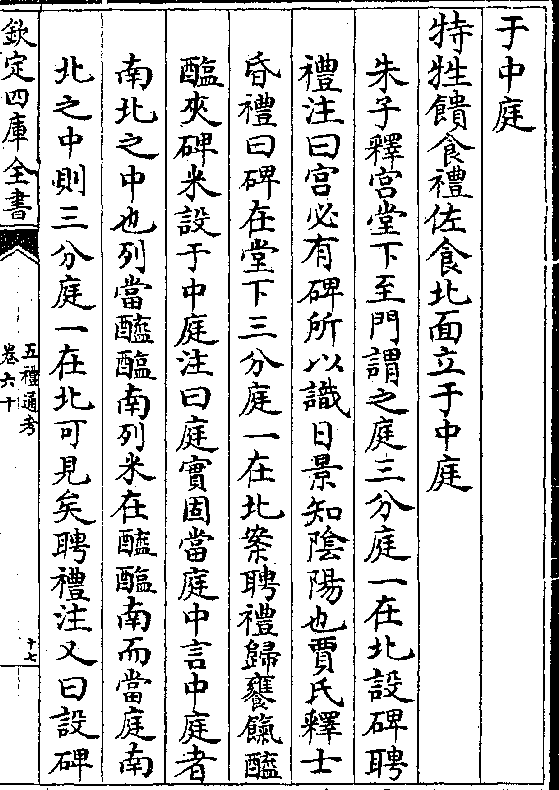 于中庭
特牲饋食禮佐食北面立于中庭
朱子釋宮堂下至門謂之庭三分庭一在北設碑聘
禮注曰宮必有碑所以識日景知陰陽也賈氏釋士
昏禮曰碑在堂下三分庭一在北案聘禮歸饔餼醯
醢夾碑米設于中庭注曰庭實固當庭中言中庭者
南北之中也列當醯醢南列米在醯醢南而當庭南
北之中則三分庭一在北可見矣聘禮注又曰設碑
欽定四庫全書
五禮通考
卷六十
十七